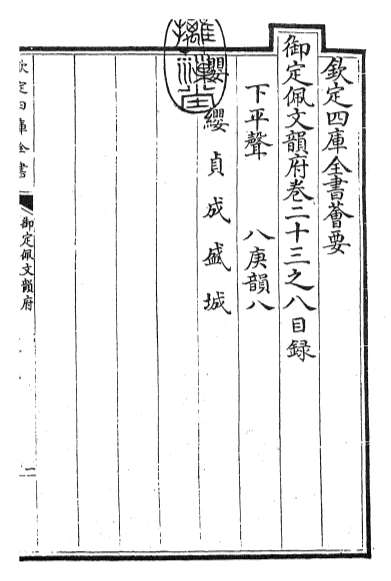 欽定四庫全書薈要
御定佩文韻府卷二十三之八目録
下平聲 八庚韻八
纓貞成盛城
欽定四庫全書
御定佩文韻府